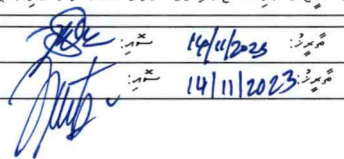 ތާރީޚު: 14/11/2023 ސޮއި:
ތާރީޚު: 14/11/2023 ސޮއި: